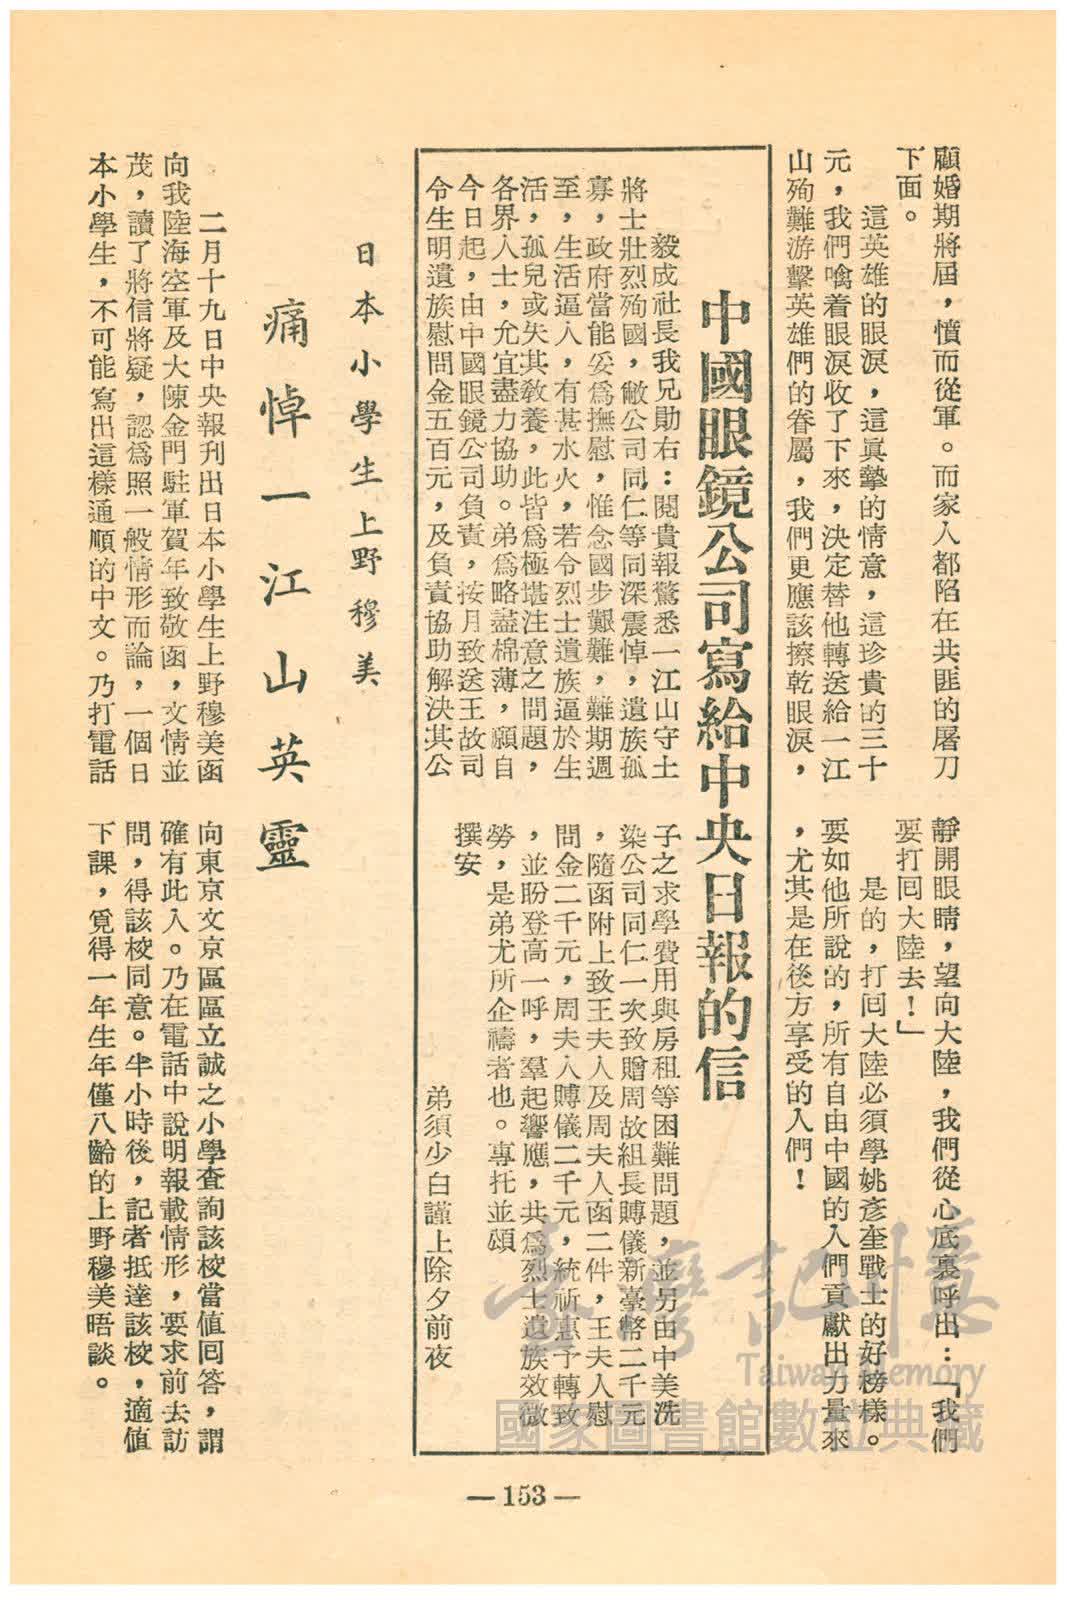 顧婚期將屆，憤而從軍。而家人都陷在共匪的屠刀
下面。
這英雄的眼淚，這眞摯的情意，這珍貴的三十
元，我們噙着眼淚收了下來，決定替他轉送給一江
山殉難游擊英雄們的眷屬，我們更應該擦乾眼淚，
靜開眼睛，望向大陸，我們從心底裏呼出：「我們
要打囘大陸去！」
是的，打囘大陸必須學姚彥奎戰士的好榜樣。
要如他所說的，所有自由中國的人們貢獻出力量來
，尤其是在後方享受的人們！
中國眼鏡公司寫給中央日報的信
毅成社長我兄勛右：閱貴報驚悉一江山守土
將士壯烈殉國，敝公司同仁等同深震悼，遺族孤
寡，政府當能妥爲撫慰，惟念國步艱難，難期週
至，生活逼人，有甚水火，若令烈士遺族逼於生
活，孤兒或失其敎養，此皆爲極堪注意之問題，
各界人士，允宜盡力協助。弟爲略盡棉薄，願自
今日起，由中國眼鏡公司負責，按月致送王故司
令生明遺族慰問金五百元，及負責協助解決其公
子之求學費用與房租等困難問題，並另由中美洗
染公司同仁一次致贈周故組長賻儀新臺幣二千元
，隨函附上致王夫人及周夫人函二件，王夫人慰
問金二千元，周夫人賻儀二千元，統祈惠予轉致
，並盼登高一呼，羣起響應，共爲烈士遺族效微
勞，是弟尤所企禱者也。專托並頌
撰安
弟須少白謹上除夕前夜
日本小學生上野穆美
痛悼一江山英靈
二月十九日中央報刊出日本小學生上野穆美函
向我陸海空軍及大陳金門駐軍賀年致敬函，文情並
茂，讀了將信將疑，認爲照一般情形而論，一個日
本小學生，不可能寫出這樣通順的中文。乃打電話
向東京文京區區立誠之小學查詢該校當值囘答，謂
確有此人。乃在電話中說明報載情形，要求前去訪
問，得該校同意。半小時後，記者抵達該校，適值
下課，覓得一年生年僅八齡的上野穆美晤談。
—153—
臺灣記憶
Taiwan Memory
國家圖書館數位典藏